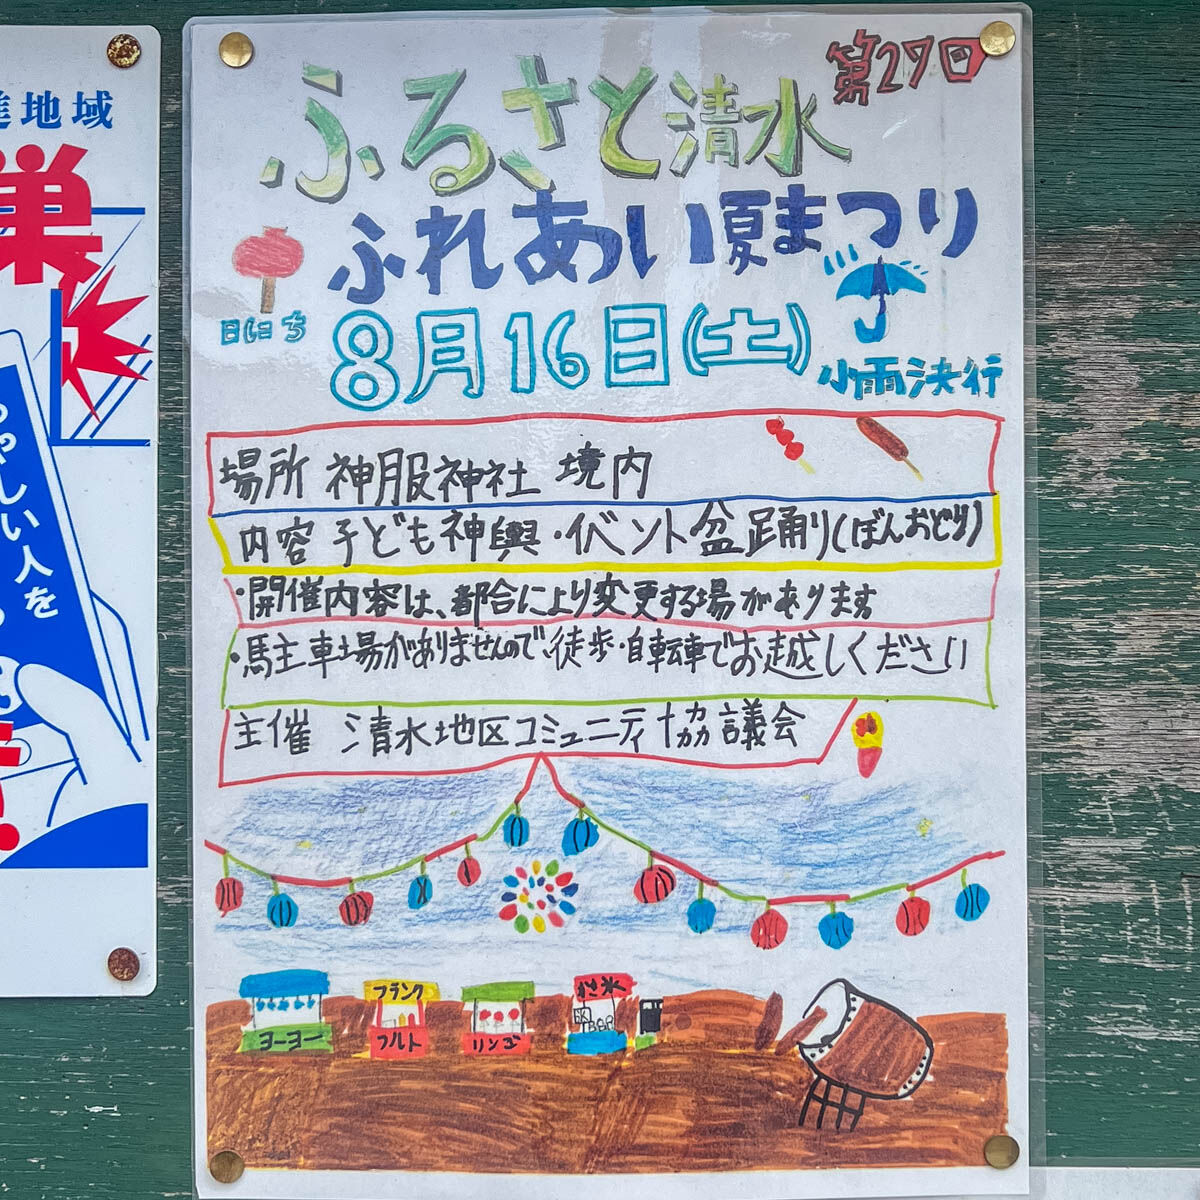 第27回
ふるさと清水
ふれあい夏まつり
日にち 8月16日(土)
小雨決行
場所 神服神社 境内
内容 子ども神輿・イベント盆踊り(ぼんおどり)
・開催内容は、都合により変更する場があります
・馬主車場がありませんので、徒歩・自転車でお越しください
主催 清水地区コミュニティ協議会
ヨーヨー
フランク
フルト
リンゴ
かき氷
進地域
巣
やしい人を